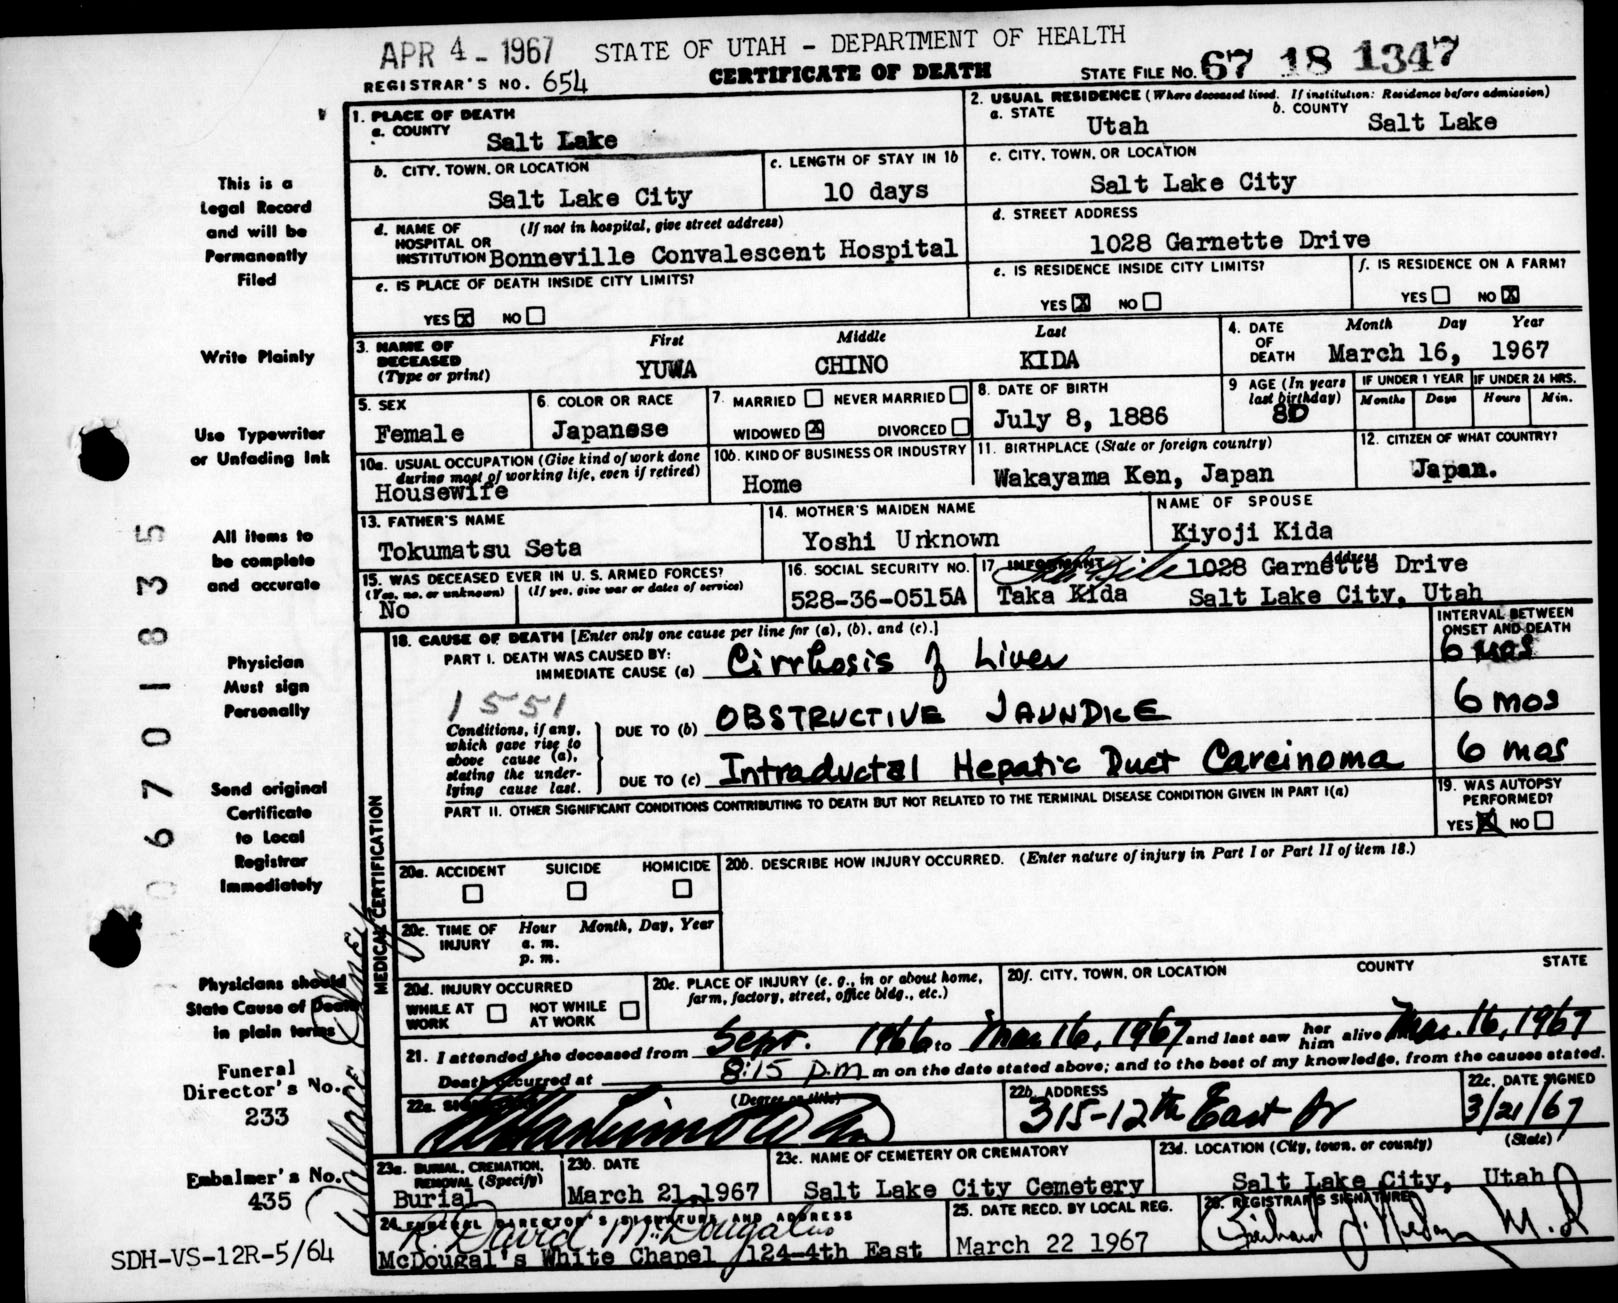 APR 4 - 1967 STATE OF UTAH - DEPARTMENT OF HEALTH
REGISTRAR'S NO. 654 CERTIFICATE OF DEATH STATE FILE NO. 67 18 1347
1. PLACE OF DEATH
a. COUNTY Salt Lake
2. USUAL RESIDENCE (Where deceased lived. If institution: Residence before admission)
a. STATE Utah b. COUNTY Salt Lake
b. CITY, TOWN, OR LOCATION Salt Lake City
c. LENGTH OF STAY IN 1b 10 days
c. CITY, TOWN, OR LOCATION Salt Lake City
d. NAME OF HOSPITAL OR INSTITUTION (If not in hospital, give street address) Bonneville Convalescent Hospital
d. STREET ADDRESS 1028 Garnette Drive
e. IS PLACE OF DEATH INSIDE CITY LIMITS?
YES X NO
e. IS RESIDENCE INSIDE CITY LIMITS?
YES X NO
f. IS RESIDENCE ON A FARM?
YES NO X
3. NAME OF DECEASED (Type or print)
First Middle Last
YUWA CHINO KIDA
4. DATE OF DEATH Month Day Year
March 16, 1967
5. SEX Female
6. COLOR OR RACE Japanese
7. MARRIED NEVER MARRIED
WIDOWED X DIVORCED
8. DATE OF BIRTH July 8, 1886
9 AGE (In years last birthday) 80
IF UNDER 1 YEAR Months Days
IF UNDER 24 HRS. Hours Min.
10a. USUAL OCCUPATION (Give kind of work done during most of working life, even if retired)
Housewife
10b. KIND OF BUSINESS OR INDUSTRY Home
11. BIRTHPLACE (State or foreign country) Wakayama Ken, Japan
12. CITIZEN OF WHAT COUNTRY? Japan.
13. FATHER'S NAME Tokumatsu Seta
14. MOTHER'S MAIDEN NAME Yoshi Unknown
NAME OF SPOUSE Kiyoji Kida
15. WAS DECEASED EVER IN U. S. ARMED FORCES?
(Yes, no, or unknown) (If yes, give war or dates of service)
No
16. SOCIAL SECURITY NO. 528-36-0515A
17 INFORMANT Taka Kida
Address 1028 Garnette Drive
Salt Lake City, Utah
MEDICAL CERTIFICATION
18. CAUSE OF DEATH [Enter only one cause per line for (a), (b), and (c).]
INTERVAL BETWEEN ONSET AND DEATH
PART I. DEATH WAS CAUSED BY:
IMMEDIATE CAUSE (a) Cirrhosis of Liver 6 mos
1551
Conditions, if any, which gave rise to above cause (a), stating the underlying cause last.
DUE TO (b) OBSTRUCTIVE JAUNDICE 6 mos
DUE TO (c) Intraductal Hepatic Duct Carcinoma 6 mos
PART II. OTHER SIGNIFICANT CONDITIONS CONTRIBUTING TO DEATH BUT NOT RELATED TO THE TERMINAL DISEASE CONDITION GIVEN IN PART I(a)
19. WAS AUTOPSY PERFORMED?
YES X NO
20a. ACCIDENT SUICIDE HOMICIDE
20b. DESCRIBE HOW INJURY OCCURRED. (Enter nature of injury in Part I or Part II of item 18.)
20c. TIME OF INJURY Hour Month, Day, Year
a. m.
p. m.
20d. INJURY OCCURRED
WHILE AT WORK NOT WHILE AT WORK
20e. PLACE OF INJURY (e. g., in or about home, farm, factory, street, office bldg., etc.)
20f. CITY, TOWN, OR LOCATION COUNTY STATE
21. I attended the deceased from Sept. 1966 to Mar 16, 1967 and last saw her him alive Mar. 16, 1967
Death occurred at 8:15 p.m m on the date stated above; and to the best of my knowledge, from the causes stated.
22a. (Degree or title)
22b. ADDRESS 315-12th East
22c. DATE SIGNED 3/21/67
23a. BURIAL, CREMATION, REMOVAL (Specify) Burial
23b. DATE March 21, 1967
23c. NAME OF CEMETERY OR CREMATORY Salt Lake City Cemetery
23d. LOCATION (City, town, or county) (State) Salt Lake City, Utah
24. FUNERAL DIRECTOR'S SIGNATURE AND ADDRESS
R. David McDougal
McDougal's White Chapel 124-4th East
25. DATE RECD. BY LOCAL REG. March 22 1967
26. REGISTRAR'S SIGNATURE M.D
This is a
Legal Record
and will be
Permanently
Filed
Write Plainly
Use Typewriter
or Unfading Ink
All items to
be complete
and accurate
Physician
Must sign
Personally
Send original
Certificate
to Local
Registrar
Immediately
Physicians should
State Cause of Death
in plain terms
Funeral
Director's No.
233
Embalmer's No.
435
SDH-VS-12R-5/64
06701835
Wallace